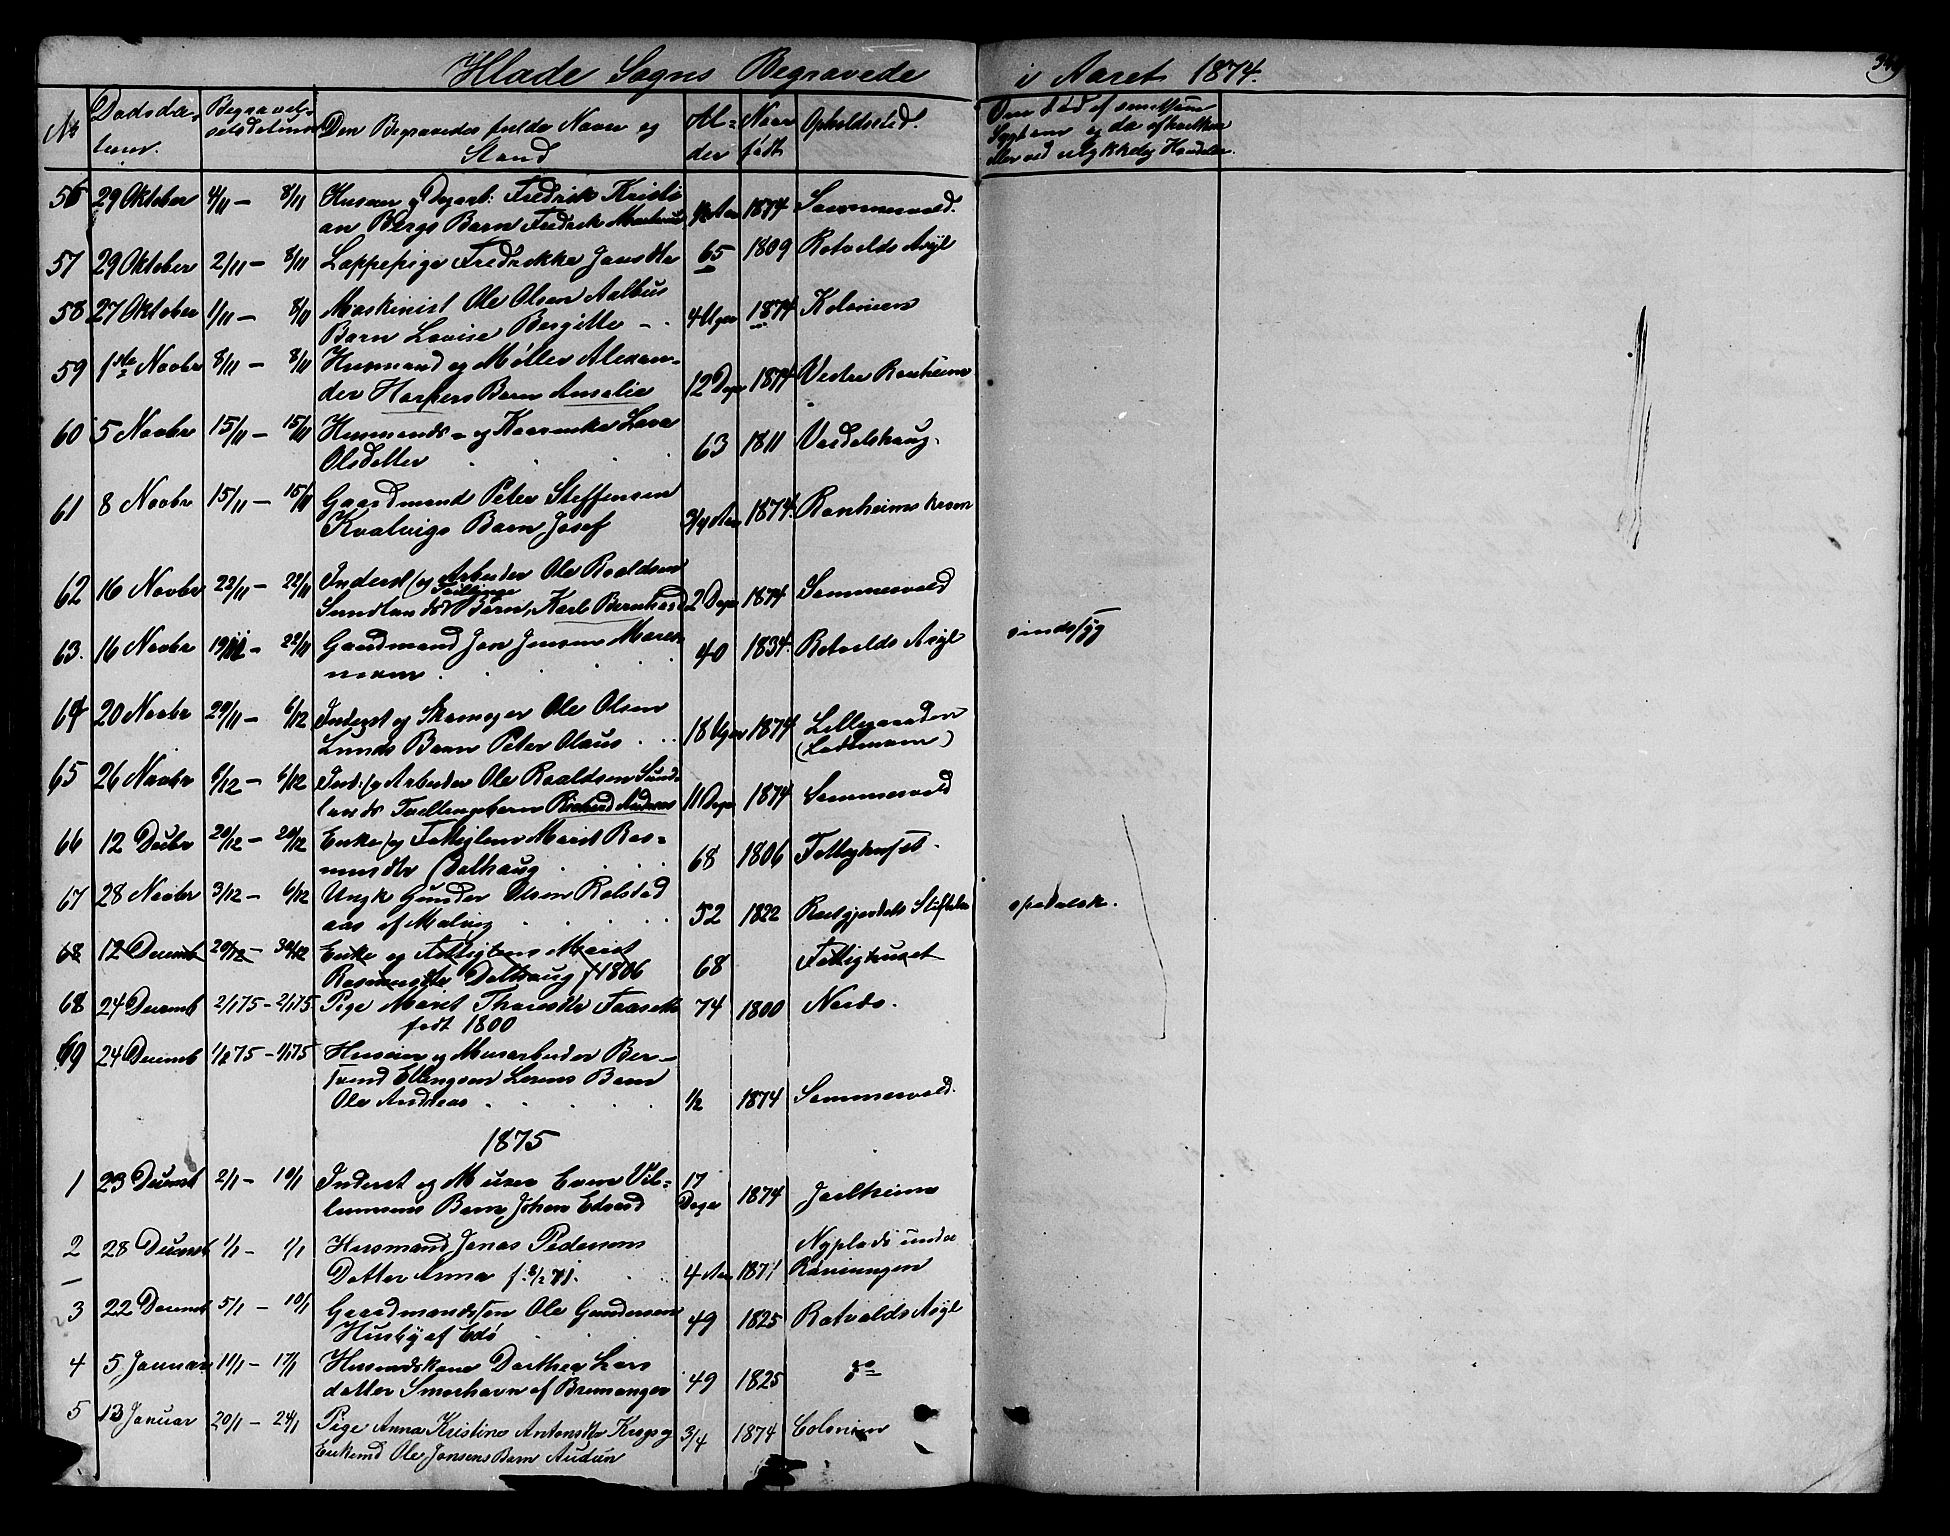 Hlade Sogns Begravede i Aaret 1874.
349
No Dødsda- Begravel- Den Begravedes fulde Navn og Al- Naar Opholdssted.
tum. sesdatum Stand der født
56 29 Oktober 4/11 – 8/11 Husaer og Dagarb: Fredrik Kristi
an Bergs Barn Fredrik 1874 Sommervold.
57 29 Oktober 2/11 – 8/11 Lappepige Fredrikke Jonsdtr 65 1809 Rotvolds Asyl
58 27 Oktober 1/11 – 8/11 Maskinist Ole Olsen Aalbus
Barn Lovise Bergitte – . 4 Uger 1874 Kolonien
59 1ste Novbr 8/11 – 8/11 Husmand og Møller Alexan-
der Harpers Barn Amalia 12 Dage 1874 Vestre Ranheim
60 5 Novbr 15/11 – 15/11 Husmands- og
Olsdatter . . . . 63 1811
61 8 Novbr 15/11 – 15/11 Gaardmand Peter Steffensen
Kvalvigs Barn Josef 3/4 Aar 1874. Ranheims
62 16 Novbr 22/11 – 22/11 Inderst og Arbeider Ole Roaldsen
Tvillinge
Sundlands Barn, Karl Bernhard 2 Dage 1874 Sommervold
63. 16 Novbr 19/11 – 22/11 Gaardmand Jon Jensen
40 1834. Rotvolds Asyl sindssyg
64 20 Novbr 29/11 – 6/12 Inderst og Skomager Ole Olsen
Lunds Barn Peter Olaus . . . 18 Uger 1874 Lillegaarden
(Lademoen)
65 26 Novbr 6/12 – 6/12 Ind: og Arbeider Ole Roaldsen Sund-
lands Tvillingebarn Rikard Andreas 11 Dage 1874 Sommervold
66 12 Decbr 20/12 – 20/12 Enke og Fattiglem Marit Ras-
musdtr Dalhaug . . . . 68 1806 Fattighuset.
67 28 Novbr 3/12 – 6/12 Ungk Gunder Olsen Rolstad
aas af Malvig . . . . 52 1822 Stiftelse spedalsk.
68 12 Decemb 20/12 – 30/12 Enke og Fattiglem Marit
Rasmusdtr Dalhaug f 1806 68 Fattighuset
68 24 Decemb 2/1 75 – 2/1 75 Pige Marit 74 1800
født 1800
69 24 Decemb 1/1 75 – 1/1 75 Husaer og Murarbeider Ber-
Ellingsen Barn
Ole Andreas . . . . 1/2 1874 Sommervold.
1875
1 23 Decemb 2/1 – 10/1 Inderst og Murer Even Vil-
Barn Johan Edvard 17 Dage 1874
2 28 Decemb 1/1 – 1/1 Husmand Jonas Pedersens
Datter Anna 4 Aar 1871 Nyplads under
3 22 Decemb 5/1 – 10/1 Gaardmandssøn Ole Gundersen
Husby af Edø 49 1825 Rotvolds Asyl
4 5 Januar 11/1 – 17/1 Husmandskone Dorthea Lars
datter Smørhavn af Bremanger 49 1825 do
5 13 Januar 20/1 – 24/1 Pige Anna Kristine Antonsdtr og
Enkemd Ole Jonsens Barn Audun 3/4 1874 Colonien